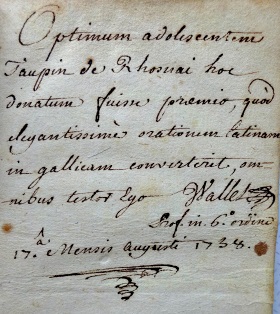 Optimum adolescentem
Taupin de Rhosnai hoc
donatum fuisse premio, quòd
elegantissimè orationem latinam
in gallicam converterit, om
nibus testor Ego Wallet
Prof. in. 6.º ordine
17.ª Mensis augusti 1738.